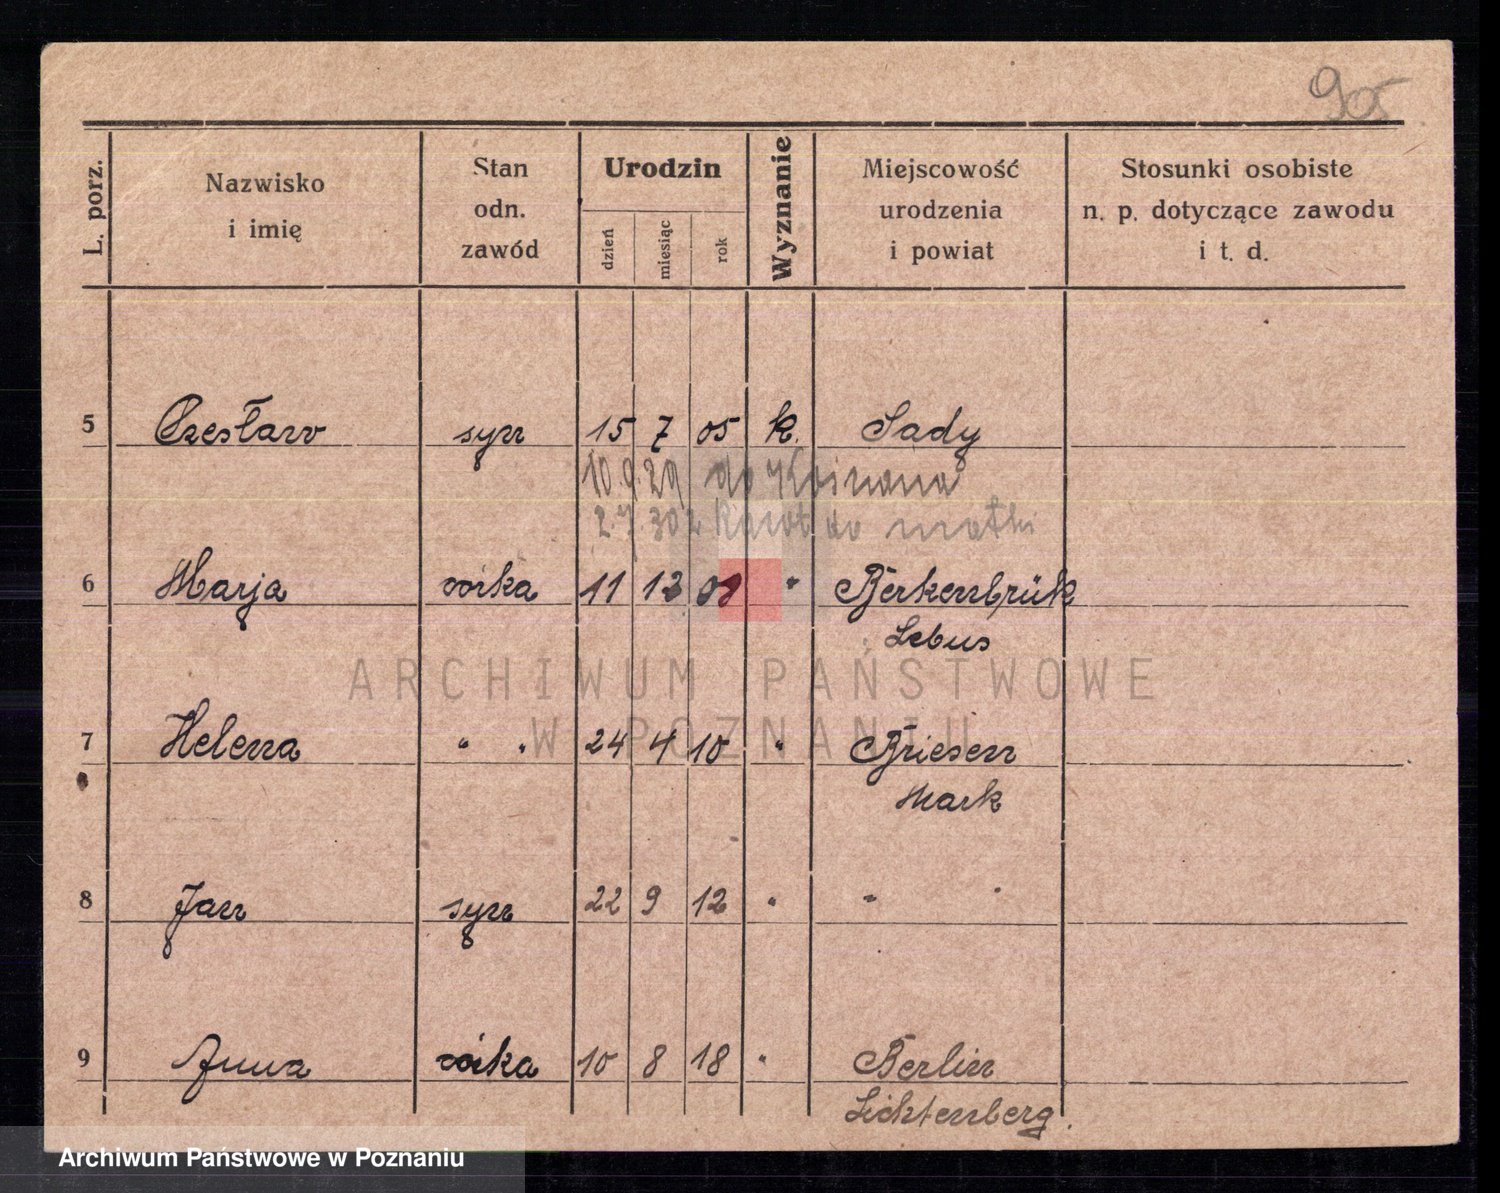 905
L. porz.
Nazwisko i imię
Stan odn. zawód
Urodzin
dzień
miesiąc
rok
Wyznanie
Miejscowość urodzenia i powiat
Stosunki osobiste n. p. dotyczące zawodu i t. d.
5 Czesław syn 15 7 05 k. Sady
10.9.29 do Poznana
2.7.30 z do matki
6 Marja córka 11 12 08 " Berkenbrük
Lebus
7 Helena " " 24 4 10 " Briesen
Mark
8 Jan syn 22 9 12 " " "
9 Anna córka 10 8 18 " Berlin
Lichtenberg.
ARCHIWUM PAŃSTWOWE
W POZNANIU
Archiwum Państwowe w Poznaniu